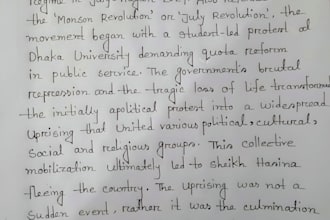 the 'Monson Revolution' or 'July Revolution', the
movement began with a student-led protest at
Dhaka University demanding quota reform
in public service. The government's brutal
repression and the tragic loss of life transformed
the initially apolitical protest into a widespread
Uprising that United various political, cultural,
Social and religious groups. This collective
mobilization ultimately led to Sheikh Hasina
fleeing the country. The uprising was not a
Sudden event, rather it was the culmination